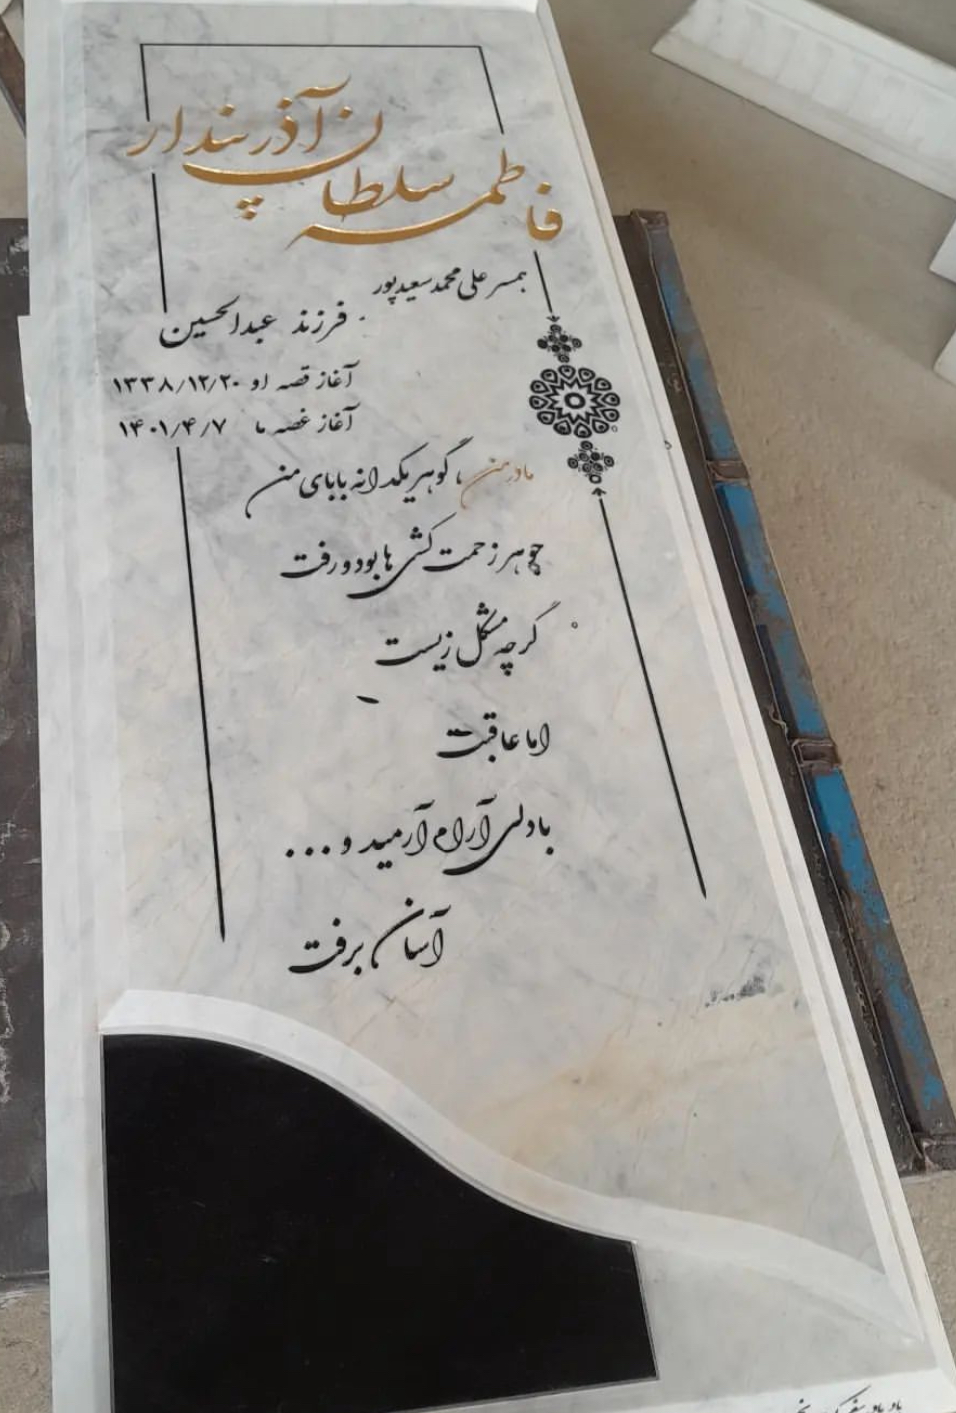 فاطمه سلطان آذرپندار
همسر علی محمد سعیدپور
فرزند عبدالحسین
آغاز قصه او ۱۳۳۸/۱۲/۲۰
آغاز غصه ما ۱۴۰۱/۴/۷
مادر من، گوهر یکدانه بابای من
جوهر زحمت کشی ها بود و رفت
گرچه مشکل زیست
اما عاقبت
با دلی آرام آرمید و ...
آسان برفت